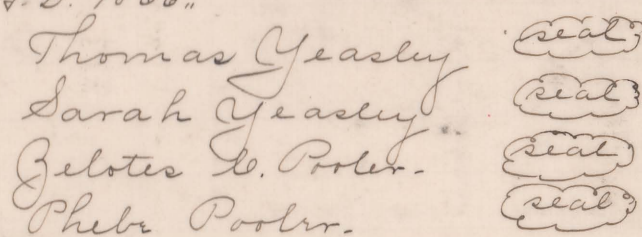 Thomas Yeasley seal
Sarah Yeasley seal
Zelotes C. Pooler. seal
Phebe Pooler. seal